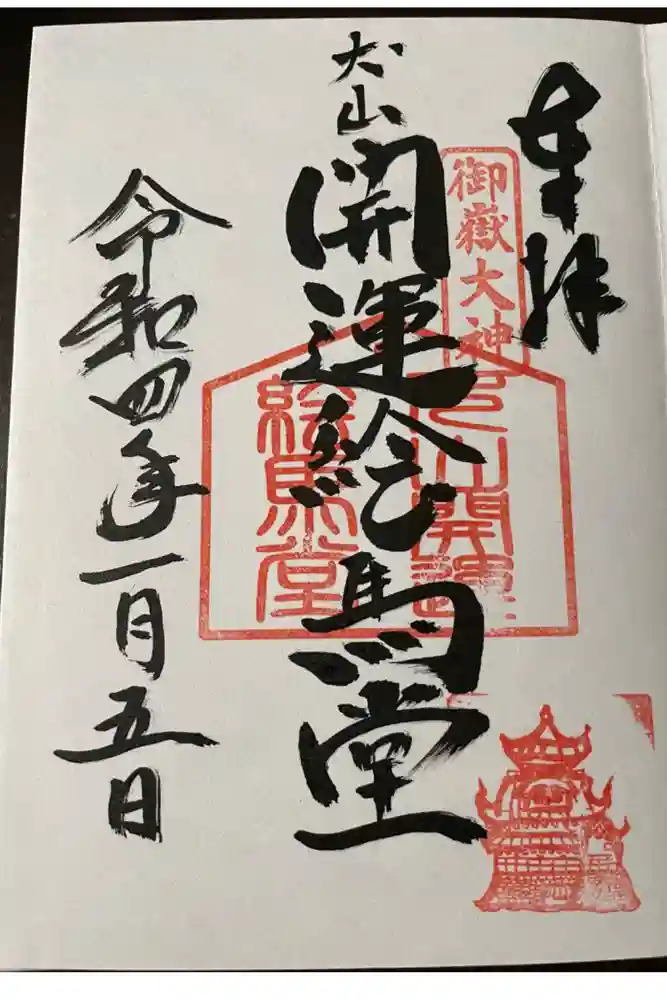 奉拝
御嶽大神
犬山
開運絵馬堂
犬山開運
絵馬堂
令和四年一月五日